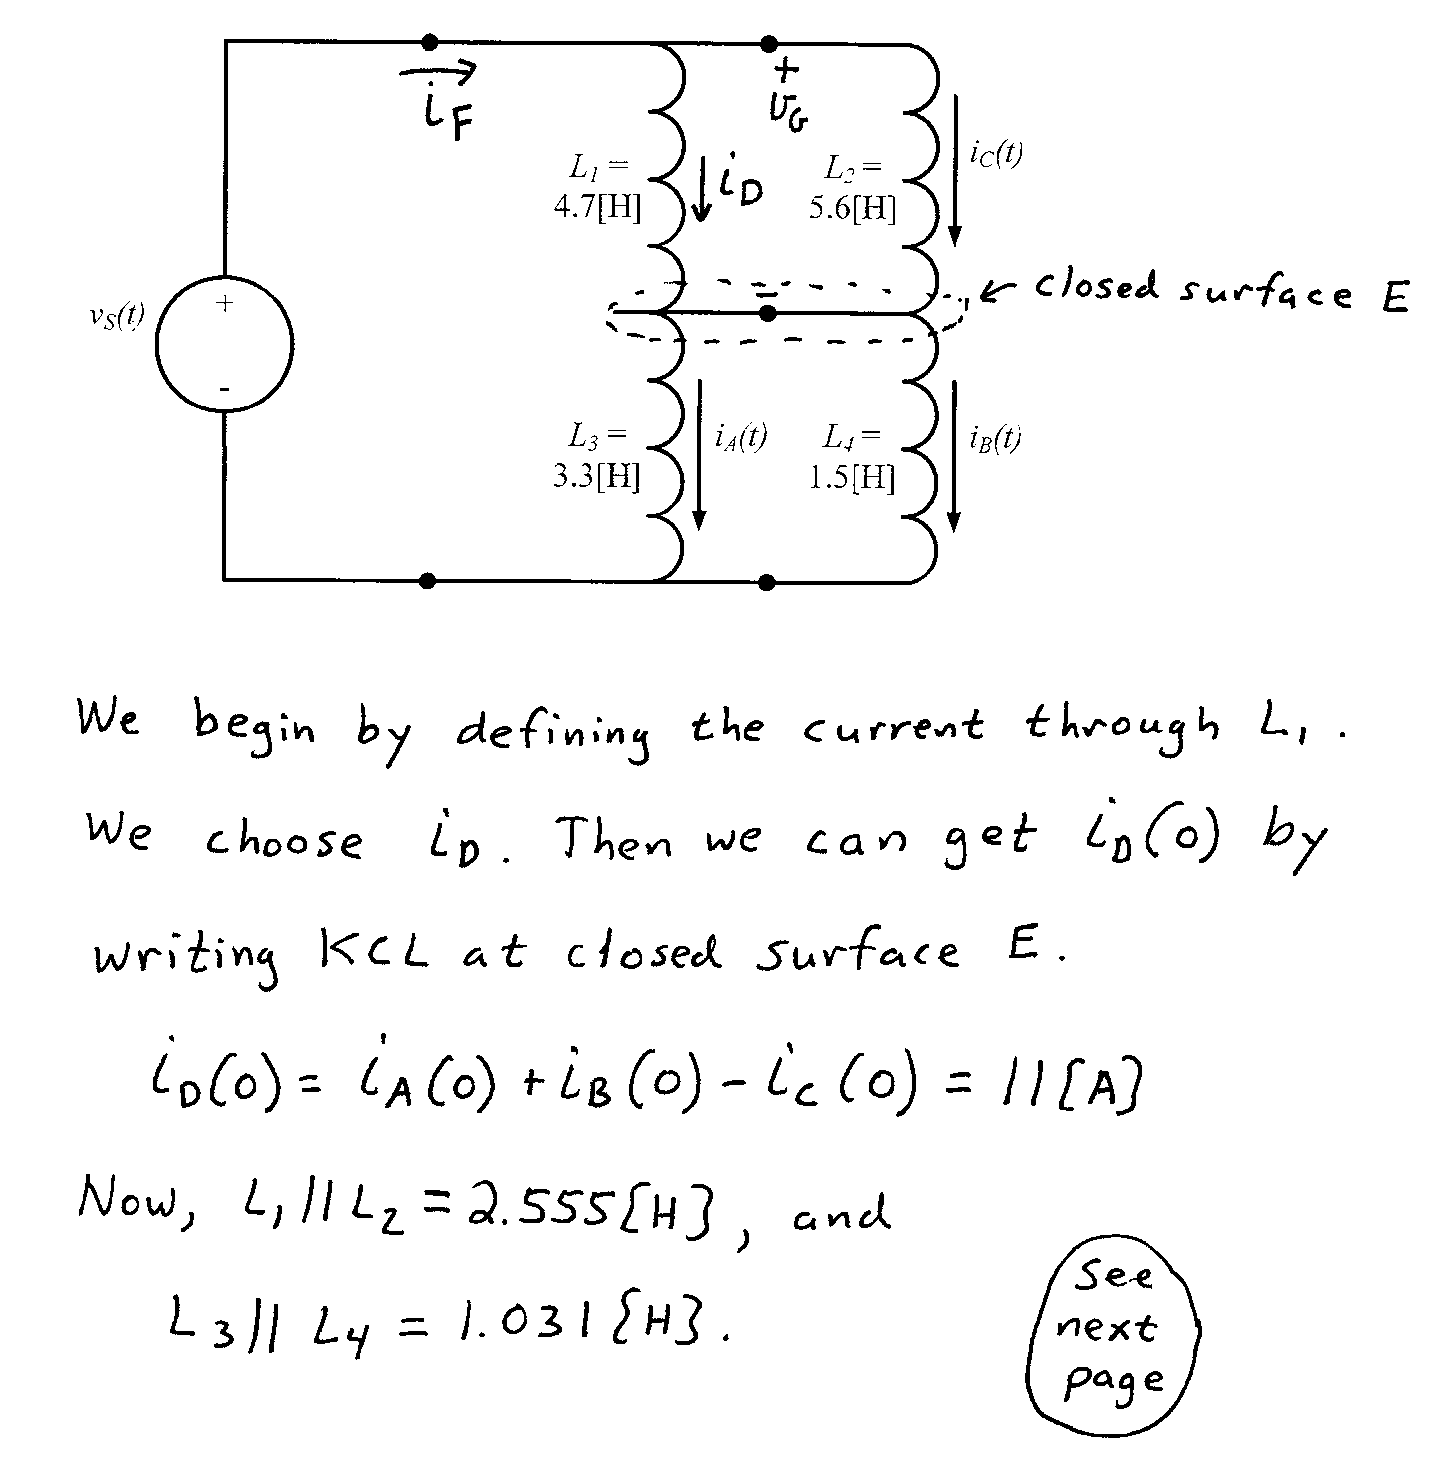 i_F
+
v_G
-
L_1 =
4.7[H]
i_D
L_2 =
5.6[H]
i_C(t)
← closed surface E
v_S(t)
+
-
L_3 =
3.3[H]
i_A(t)
L_4 =
1.5[H]
i_B(t)
We begin by defining the current through L_1.
We choose i_D. Then we can get i_D(0) by
writing KCL at closed surface E.
i_D(0) = i_A(0) + i_B(0) - i_C(0) = 11[A]
Now, L_1 || L_2 = 2.555[H], and
L_3 || L_4 = 1.031[H].
See
next
page